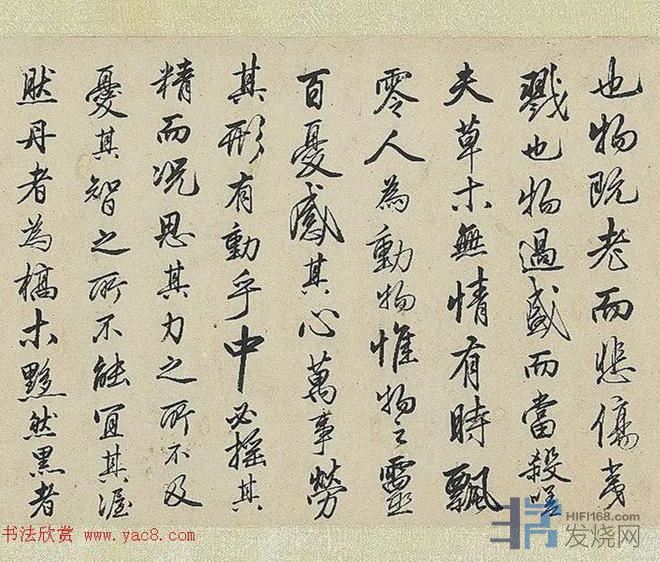 也物既老而悲傷夷
戮也物過盛而當殺嗟
夫草木無情有時飄
零人為動物惟物之靈
百憂感其心萬事勞
其形有動乎中必搖其
精而況思其力之所不及
憂其智之所不能宜其渥
然丹者為槁木黟然黑者
书法欣赏 www.yac8.com
HIFI168.com
发烧网